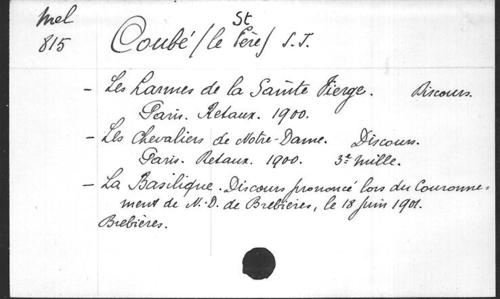 Mel
815
Coubé (le St Père) S.J.
- Les Larmes de la Sainte Vierge. Discours.
Paris. Retaux. 1900.
- Les Chevaliers de Notre-Dame. Discours.
Paris. Retaux. 1900. 3e mille.
- La Basilique. Discours prononcé lors du Couronne-
ment de N.-D. de Brebières, le 18 Juin 1901.
Brebières.